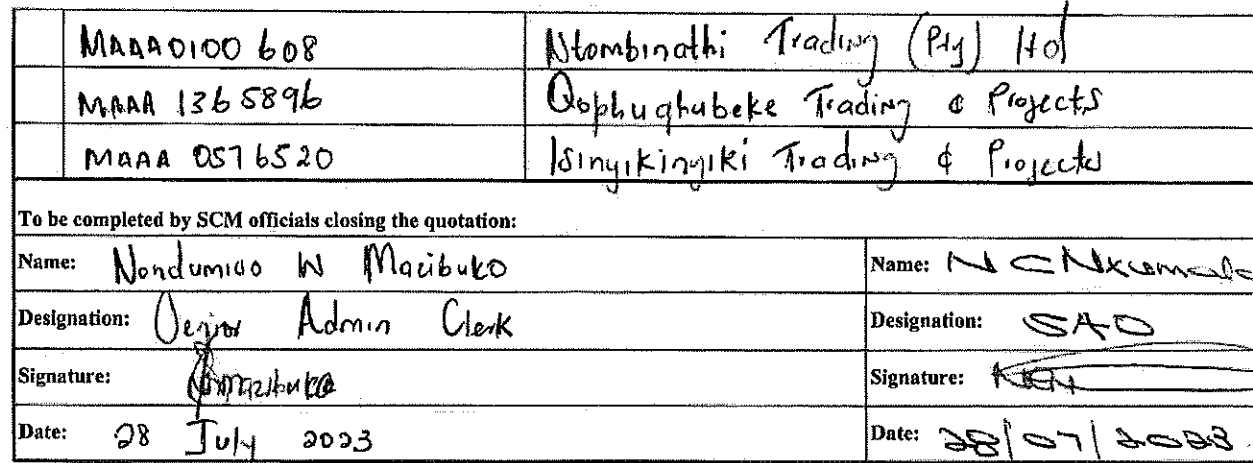 MAAA0100608 Ntombinathi Trading (Pty) Ltd
MAAA 1365896 Qophughubeke Trading & Projects
MAAA 0576520 Isinyikinyiki Trading & Projects
To be completed by SCM officials closing the quotation:
Name: Nondumiso W Mazibuko Name: N C Nxumalo
Designation: Senior Admin Clerk Designation: SAO
Signature: Signature:
Date: 28 July 2023 Date: 28/07/2023